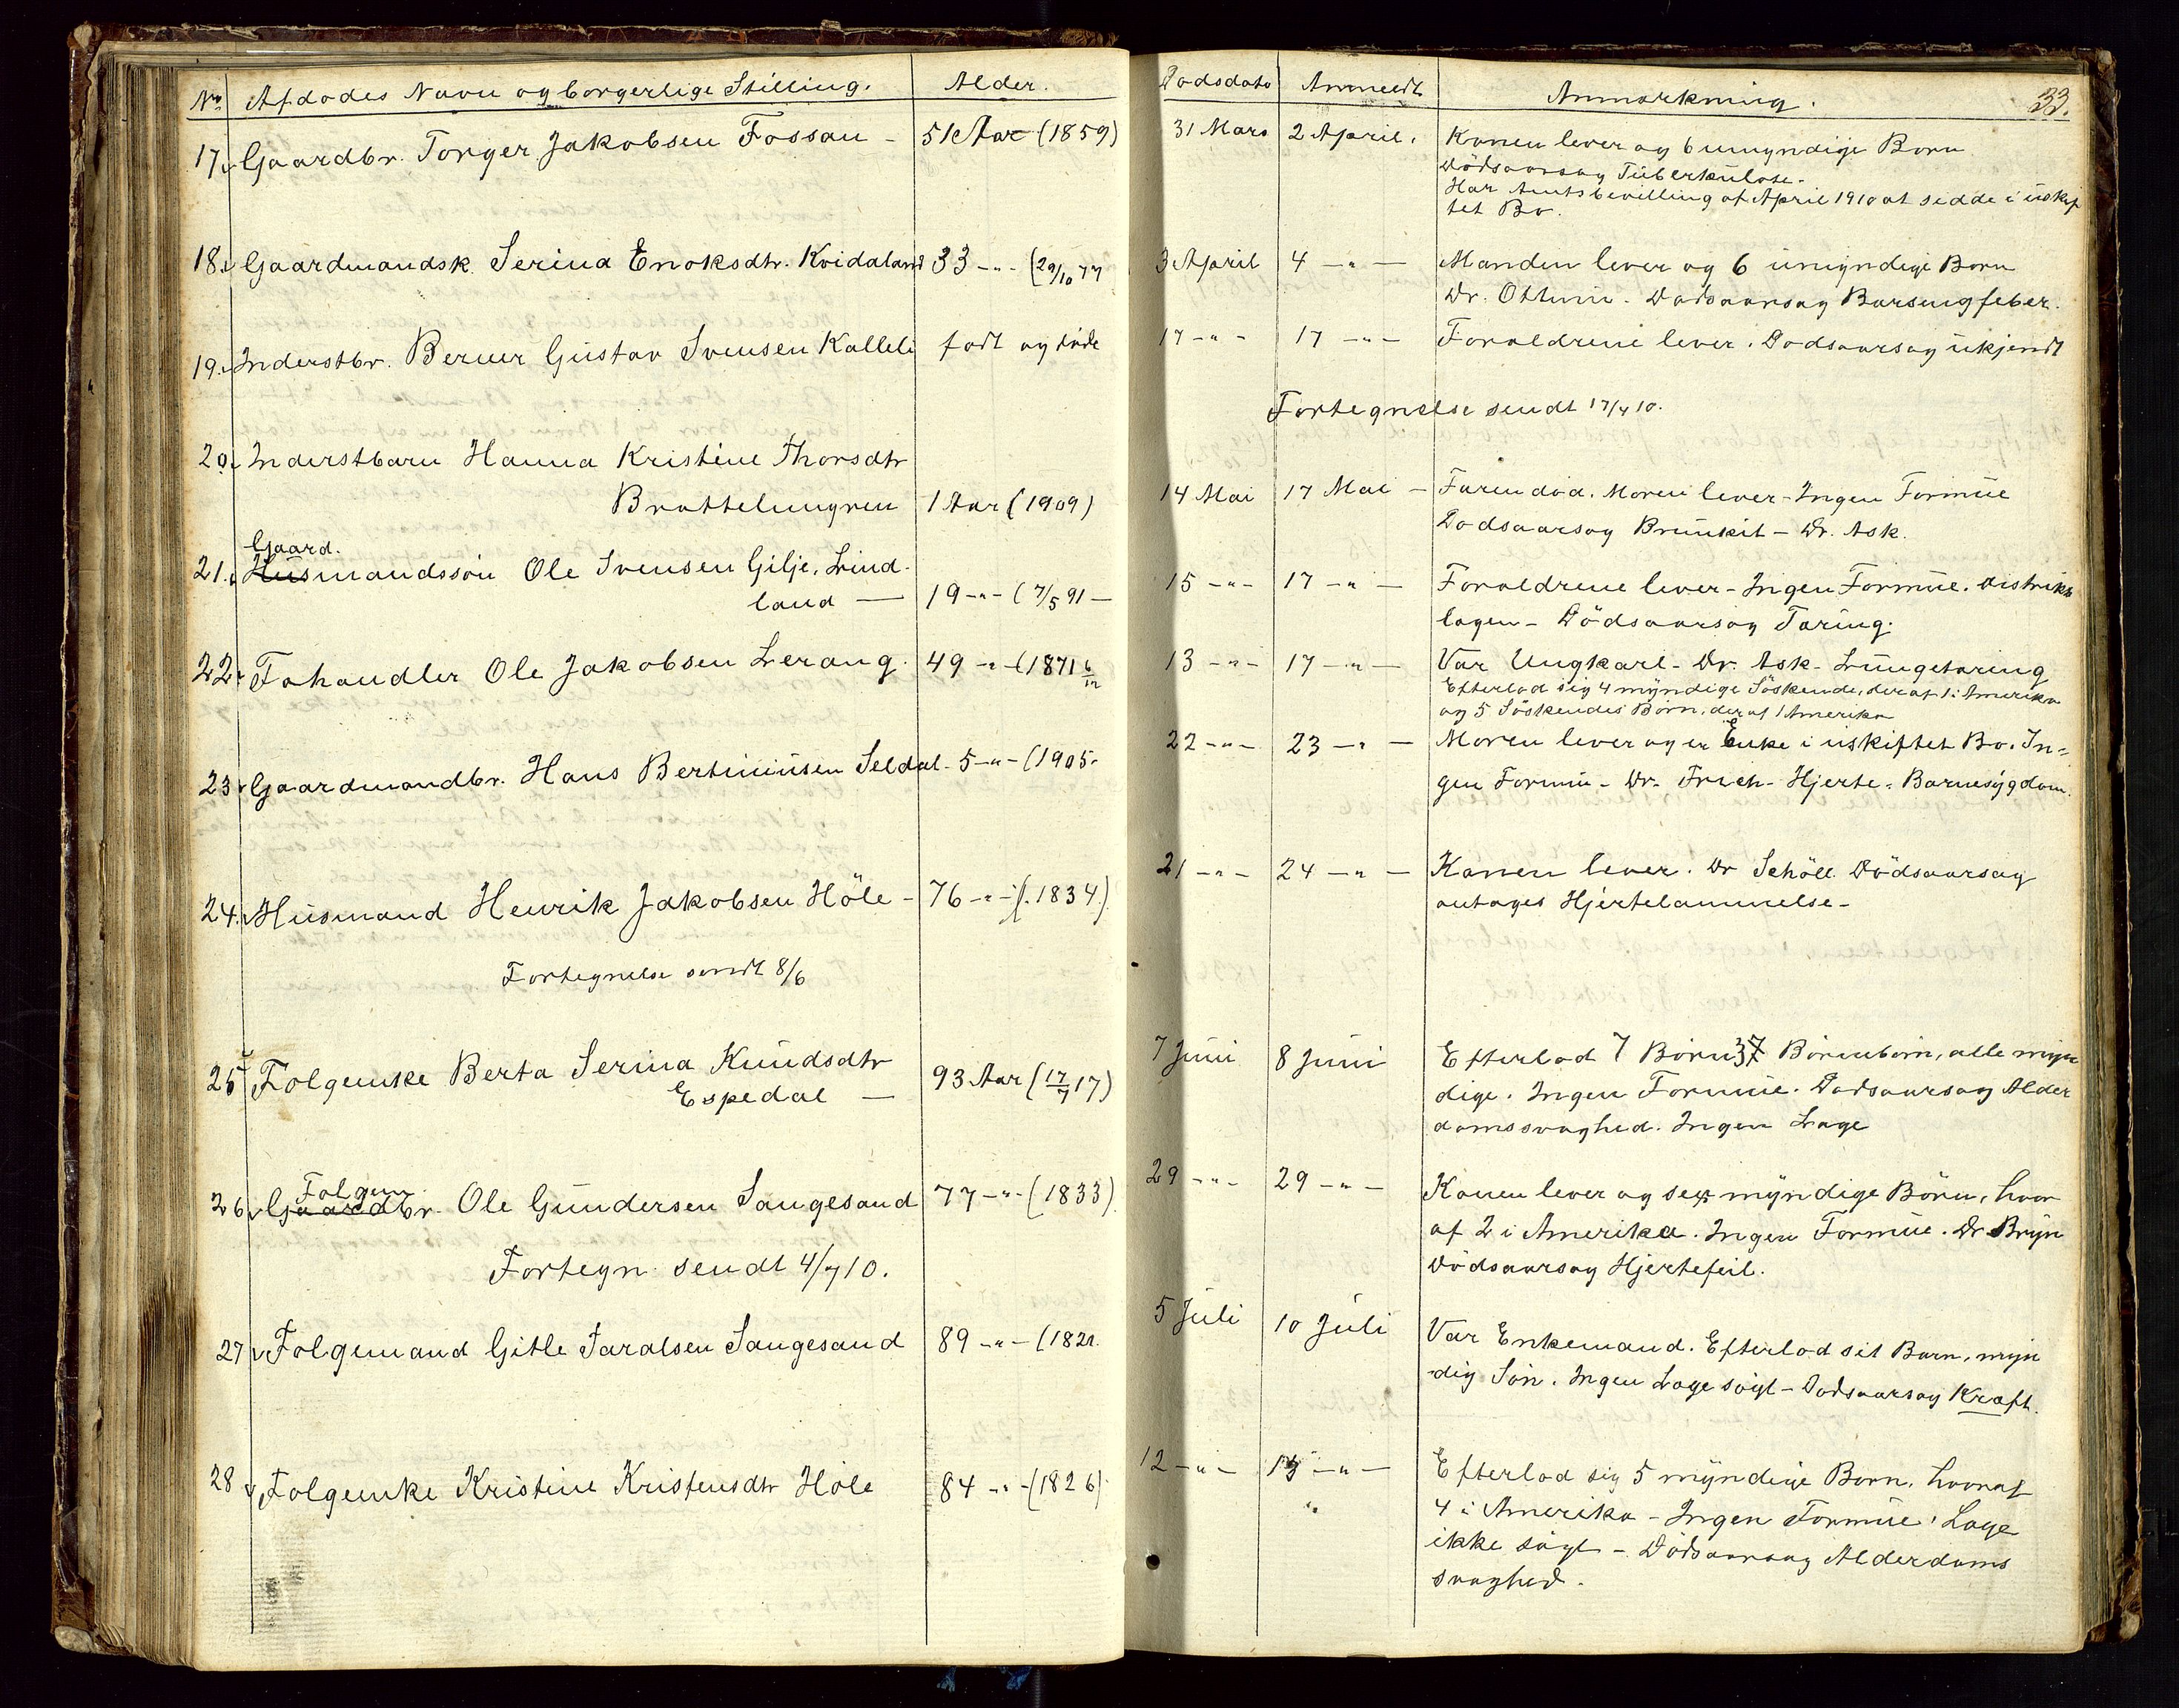 No. Afdødes Navn og borgerlige Stilling. Alder. Dødsdato Anmeldt Anmærkning. 33.
17. Gaardbr. Torger Jakobsen Fossan – 51 Aar (1859) 31 Mars 2 April. Konen lever og 6 umyndige Børn
Dödsaarsag Tüberkülose.
Har Amtsbevilling af April 1910 at sedde i uskif
tet Bo.
18. Gaardmandsk. Serina Enoksdtr. Kvidaland 33 -"- (29/10 77 3 April 4 -"- Manden lever og 6 umyndige Børn
Dødsaarsag Barsengfeber.
19. Inderstbr. Berner Gustav Svensen Kalleli født og døde 17 -"- 17 -"- Forældrene lever. Dødsaarsag ukjendt
Fortegnelse sendt 17/4 10.
20. Inderstbarn Hanna Kristine Thorsdtr
Brattelungren 1 Aar (1909) 14 Mai 17 Mai – Faren död. Moren lever – Ingen Formüe
Dødsaarsag Brunkit – Dr. Ask.
Gaard.
21. Husmandssön Ole Svensen Gilje, Lind-
land — 19 -"- (7/5 91 – 15 -"- 17 -"- Forældrene lever – Ingen Formüe. Distrikts
lægen – Dödsaarsag Tæring.
22. Fæhandler Ole Jakobsen Lerang. 49 -"- (1871 6/12 13 -"- 17 -"- Var Ungkarl – Dr. Ask – Lungetæring
Efterlod sig 4 myndige Söskende, deraf 1 i Amerika
og 5 Söskendes Börn, deraf 1 Amerika
23. Gaardmandbr. Hans Bertiniusen Seldal – 5 -"- (1905. 22 -"- 23 -"- Moren lever og er Enke i uskiftet Bo. In-
gen Formüe – Dr. Frich – Hjerte – Barnesygdom.
24. Husmand Henrik Jakobsen Höle – 76 -"- (1834.) 21 -"- 24 -"- Konen lever. Dr Schöll. Dödsaarsag
antages Hjertelammelse –
Fortegnelse sendt 8/6
25 Folgeenke Berta Serina Knudsdtr
Espedal — 93 Aar (17/7 17) 7 Juni 8 Juni Efterlod 7 Börn 37 Börnebörn, alle myn
dige. Ingen Formüe. Dødsaarsag Alder
domssvaghed. Ingen Læge
Folgem.
26. Gaardbr. Ole Gundersen Sangesand 77 -"- (1833). 29 -"- 29 -"- Konen lever og sex myndige Börn, hvor
af 2 i Amerika. Ingen Formüe. Dr Bryn
Dödsaarsag Hjertefeil.
Fortegn. sendt 4/7 10.
27 Folgemand Gitle Taralsen Sangesand 89 -"- (1821. 5 Juli 10 Juli Var Enkemand. Efterlod sit Barn, myn
dig Sön. Ingen Læge sögt – Dødsaarsag Kræft.
28 Folgeenke Kristine Kristensdtr Höle 84 -"- (1826) 12 -"- 13 -"- Efterlod sig 5 myndige Børn, hvoraf
4 i Amerika – Ingen Formüe. Læge
ikke sögt – Dödsaarsag Alderdoms
svaghed.